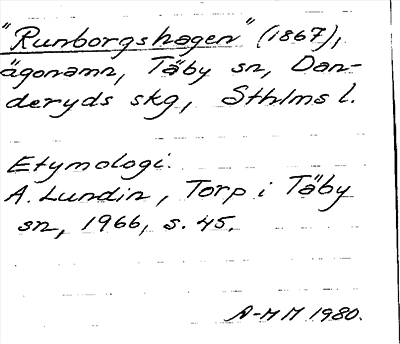 "Runborgshagen" (1867),
ägonamn, Täby sn, Dan-
deryds skg, Sthlms l.
Etymologi.
A. Lundin, Torp i Täby
sn, 1966, s. 45.
A-MM 1980.